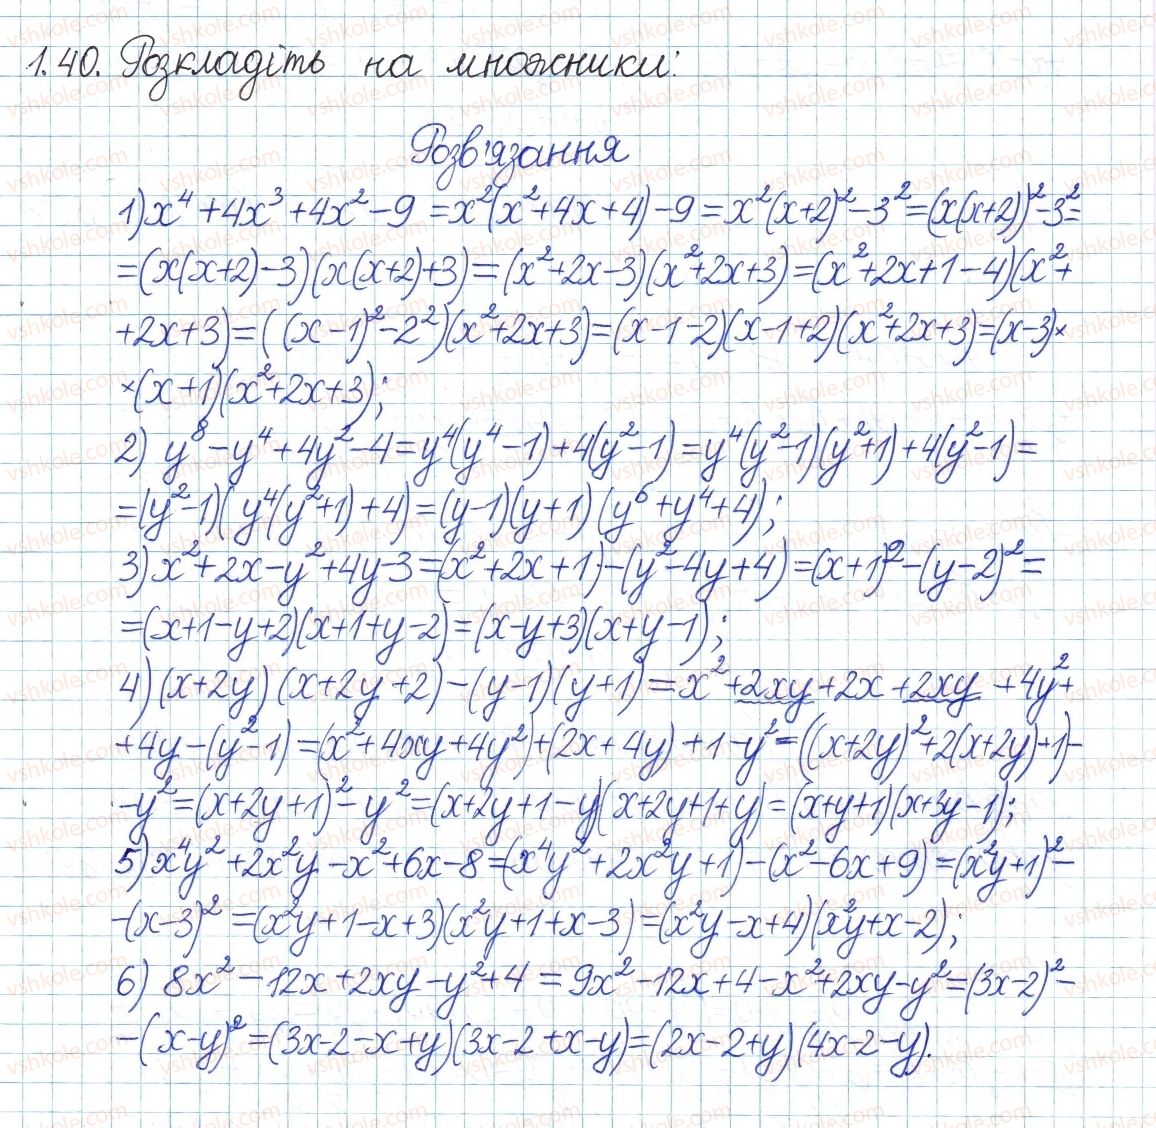 1.40. Розкладіть на множники:
Розв'язання
1) x⁴ + 4x³ + 4x² - 9 = x²(x² + 4x + 4) - 9 = x²(x+2)² - 3² = (x(x+2))² - 3² =
= (x(x+2) - 3)(x(x+2) + 3) = (x² + 2x - 3)(x² + 2x + 3) = (x² + 2x + 1 - 4)(x² +
+ 2x + 3) = ((x - 1)² - 2²)(x² + 2x + 3) = (x - 1 - 2)(x - 1 + 2)(x² + 2x + 3) = (x - 3)×
×(x + 1)(x² + 2x + 3);
2) y⁸ - y⁴ + 4y² - 4 = y⁴(y⁴ - 1) + 4(y² - 1) = y⁴(y² - 1)(y² + 1) + 4(y² - 1) =
= (y² - 1)(y⁴(y² + 1) + 4) = (y - 1)(y + 1)(y⁶ + y⁴ + 4);
3) x² + 2x - y² + 4y - 3 = (x² + 2x + 1) - (y² - 4y + 4) = (x + 1)² - (y - 2)² =
= (x + 1 - y + 2)(x + 1 + y - 2) = (x - y + 3)(x + y - 1);
4) (x + 2y)(x + 2y + 2) - (y - 1)(y + 1) = x² + 2xy + 2x + 2xy + 4y² +
+ 4y - (y² - 1) = (x² + 4xy + 4y²) + (2x + 4y) + 1 - y² = ((x + 2y)² + 2(x + 2y) + 1) -
- y² = (x + 2y + 1)² - y² = (x + 2y + 1 - y)(x + 2y + 1 + y) = (x + y + 1)(x + 3y - 1);
5) x⁴y² + 2x²y - x² + 6x - 8 = (x⁴y² + 2x²y + 1) - (x² - 6x + 9) = (x²y + 1)² -
- (x - 3)² = (x²y + 1 - x + 3)(x²y + 1 + x - 3) = (x²y - x + 4)(x²y + x - 2);
6) 8x² - 12x + 2xy - y² + 4 = 9x² - 12x + 4 - x² + 2xy - y² = (3x - 2)² -
- (x - y)² = (3x - 2 - x + y)(3x - 2 + x - y) = (2x - 2 + y)(4x - 2 - y).